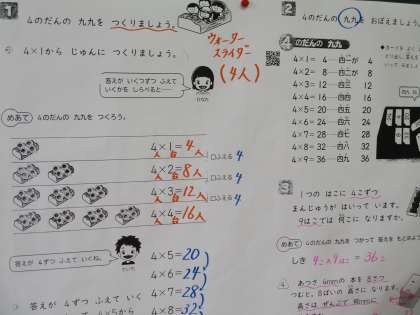 1
4のだんの 九九を つくりましょう。
4×1から じゅんに つくりましょう。
ウォーター
スライダー
(4人)
答えが いくつずつ ふえて
いくかを しらべると…
めあて 4のだんの 九九を つくろう。
4×1=4人
人 台 人
□ふえる 4
4×2=8人
人 台 人
□ふえる 4
4×3=12人
人 台 人
□ふえる 4
4×4=16人
人 台 人
答えが 4ずつ ふえて いくね。
4×5=20
4×6=24
4×7=28
4×8=32
答えが 4ずつ ふえて いく
2
4のだんの 九九を おぼえましょう。
4のだんの 九九
4×1= 4 四一が 4
4×2= 8 四二が 8
4×3=12 四三 12
4×4=16 四四 16
4×5=20 四五 20
4×6=24 四六 24
4×7=28 四七 28
4×8=32 四八 32
4×9=36 四九 36
3
1つの はこに 4こずつ
まんじゅうが はいって います。
9はこでは 何こに なりますか。
めあて 4のだんの 九九を つかって 答えを もとめよう
しき 4こ×9はこ=36こ
4
あつさ 4mmの 本を 8さつ
つむと、8ばいの 高さに なります。
高さは ぜんぶで 何mmに